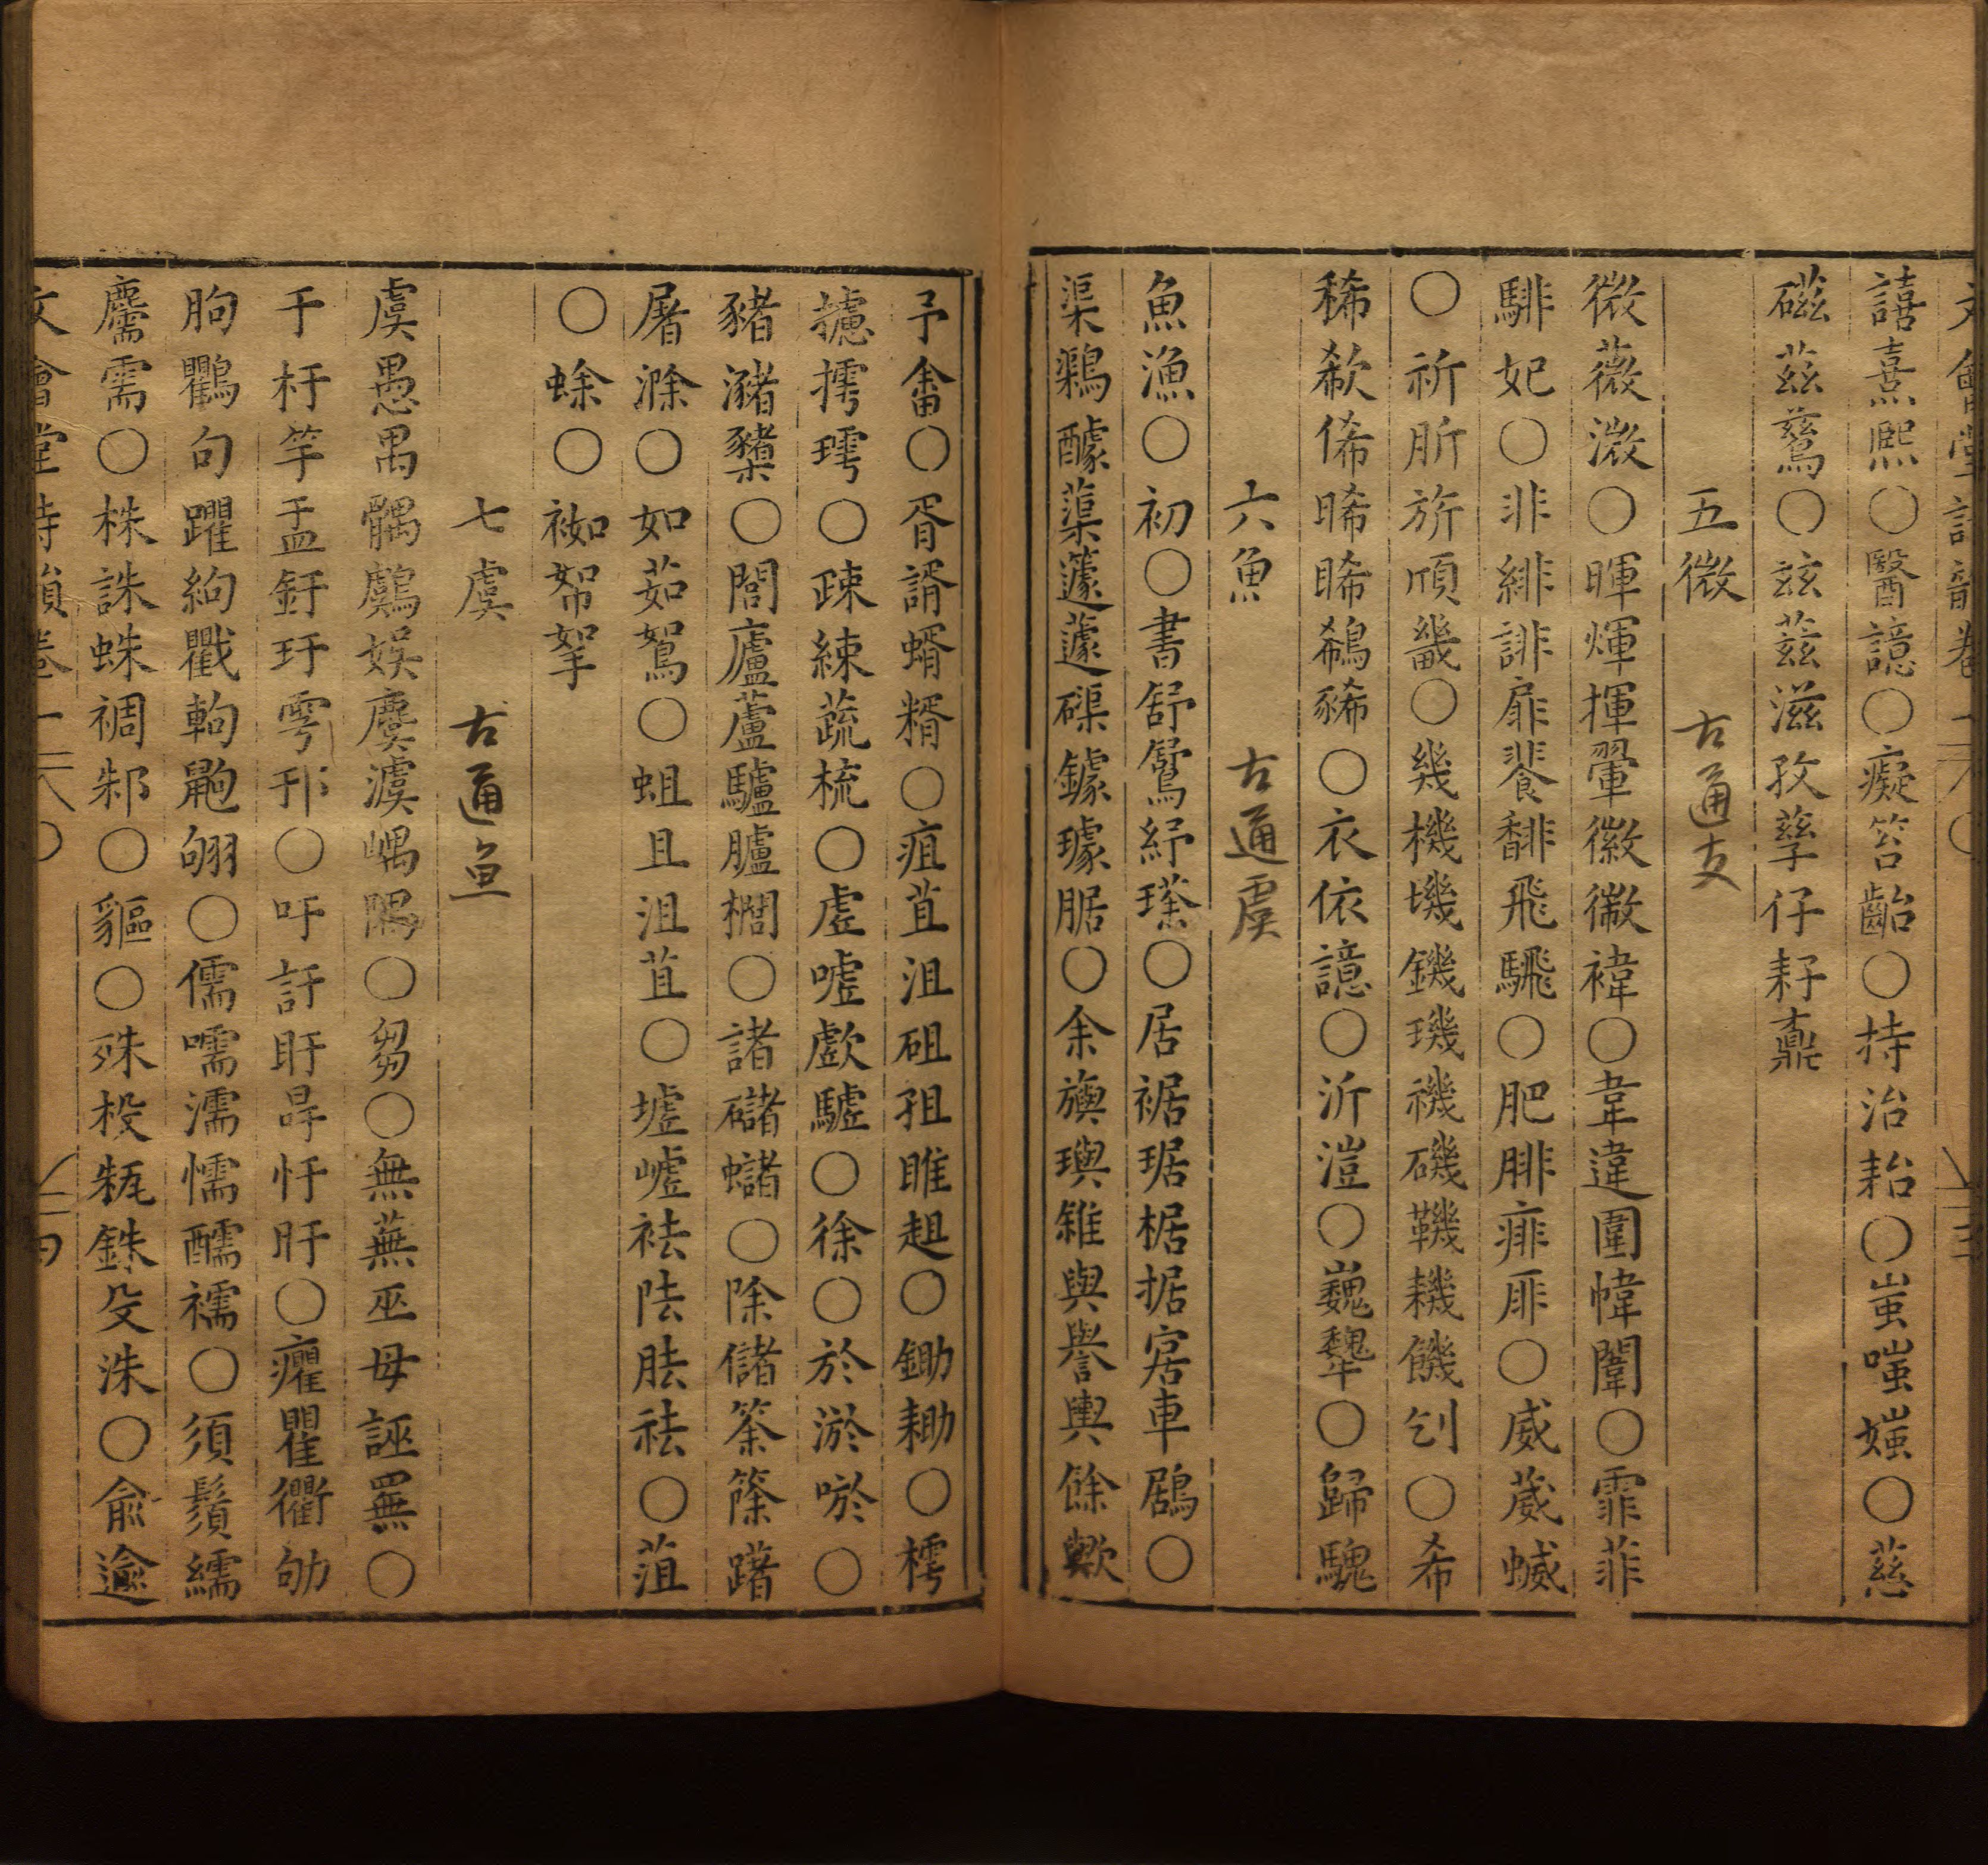 譆熹熈○醫譩○癡笞齝○持治耛○蚩嗤媸○慈
磁茲鶿○玆嵫滋孜孳仔耔鼒
五微 古通支
微薇溦○暉煇揮翬徽徾褘○韋違圍幃闈○霏菲
騑妃○非緋誹扉裴馡飛騛○肥腓痱厞○威葳蝛
○祈肵旂頎畿○幾機璣鐖璣禨磯鞿耭饑刉○希
稀欷俙晞睎鵗豨○衣依譩○沂溰○巍犩○歸騩
六魚 古通虞
魚漁○初○書舒鵨紓瑹○居裾琚椐据㝒車鶋○
渠鶏醵蕖籧蘧磲鐻璩腒○余旟璵雓與譽輿餘歟
予畬○胥諝蝑糈○疽苴沮砠狙雎趄○鋤耡○樗
攄摴㻬○疎練蔬梳○虛噓歔驉○徐○於淤唹○
豬瀦櫫○閭廬藘驢臚櫚○諸礚蠩○除儲筡篨躇
屠滁○如茹鴽○蛆且沮苴○墟嶇袪阹胠祛○菹
○蜍○袽帤挐
七虞 古通魚
虞愚禺髃鸆娛麌澞嵎隅○芻○無蕪巫毋誣𦊇○
于杅竽盂釪玗雩邘○吁訏盱㫄忬旴○癯瞿衢劬
朐鸜句躣絇戵軥鼩翑○儒嚅濡懦醹襦○須鬚繻
䴆需○株誅蛛裯邾○貙○殊杸㼡銖殳洙○俞逾